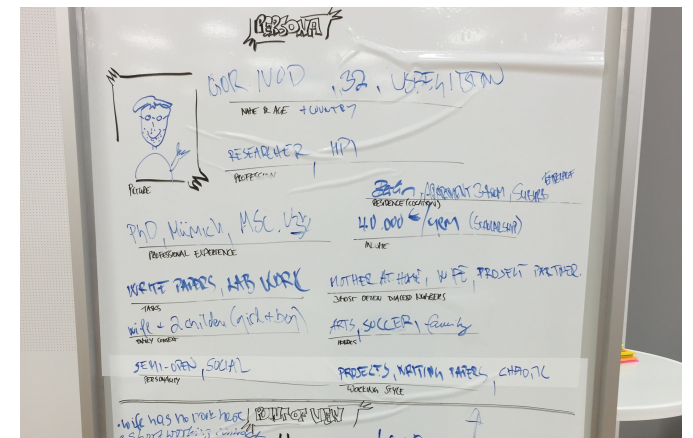 PERSONA
GOR NOD, 32, UZBEKISTAN
NAME & AGE + COUNTRY
RESEARCHER, HPI
PROFESSION
PICTURE
APARTMENT 3 ROOM, SUBURB
RESIDENCE (LOCATION)
PhD, Münich, MSC.
PROFESSIONAL EXPERIENCE
40.000 €/YEAR (SCHOLARSHIP)
INCOME
WRITE PAPERS, LAB WORK
TASKS
MOTHER AT HOME, WIFE, PROJECT PARTNER
3 MOST OFTEN DIALED NUMBERS
wife + 2 children (girl + boy)
FAMILY CONTEXT
ARTS, SOCCER, family
HOBBIES
SEMI-OPEN, SOCIAL
PERSONALITY
PROJECTS, WRITING PAPERS, CHAOTIC
WORKING STYLE
• wife has no work here
POINT OF VIEW